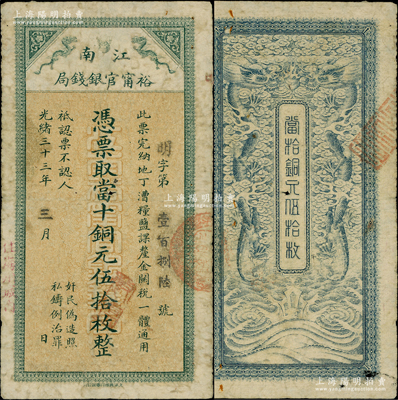 江南
裕甯官銀錢局
明字第壹百捌陸號
此票完納地丁漕糧鹽課釐金關稅一體通用
憑票取當十銅元伍拾枚整
祗認票不認人
光緒三十三年三月日
奸民偽造照
私鑄例治罪
當拾銅元伍拾枚
上海陽明拍賣
上海陽明拍賣
上海陽明拍賣
上海陽明拍賣